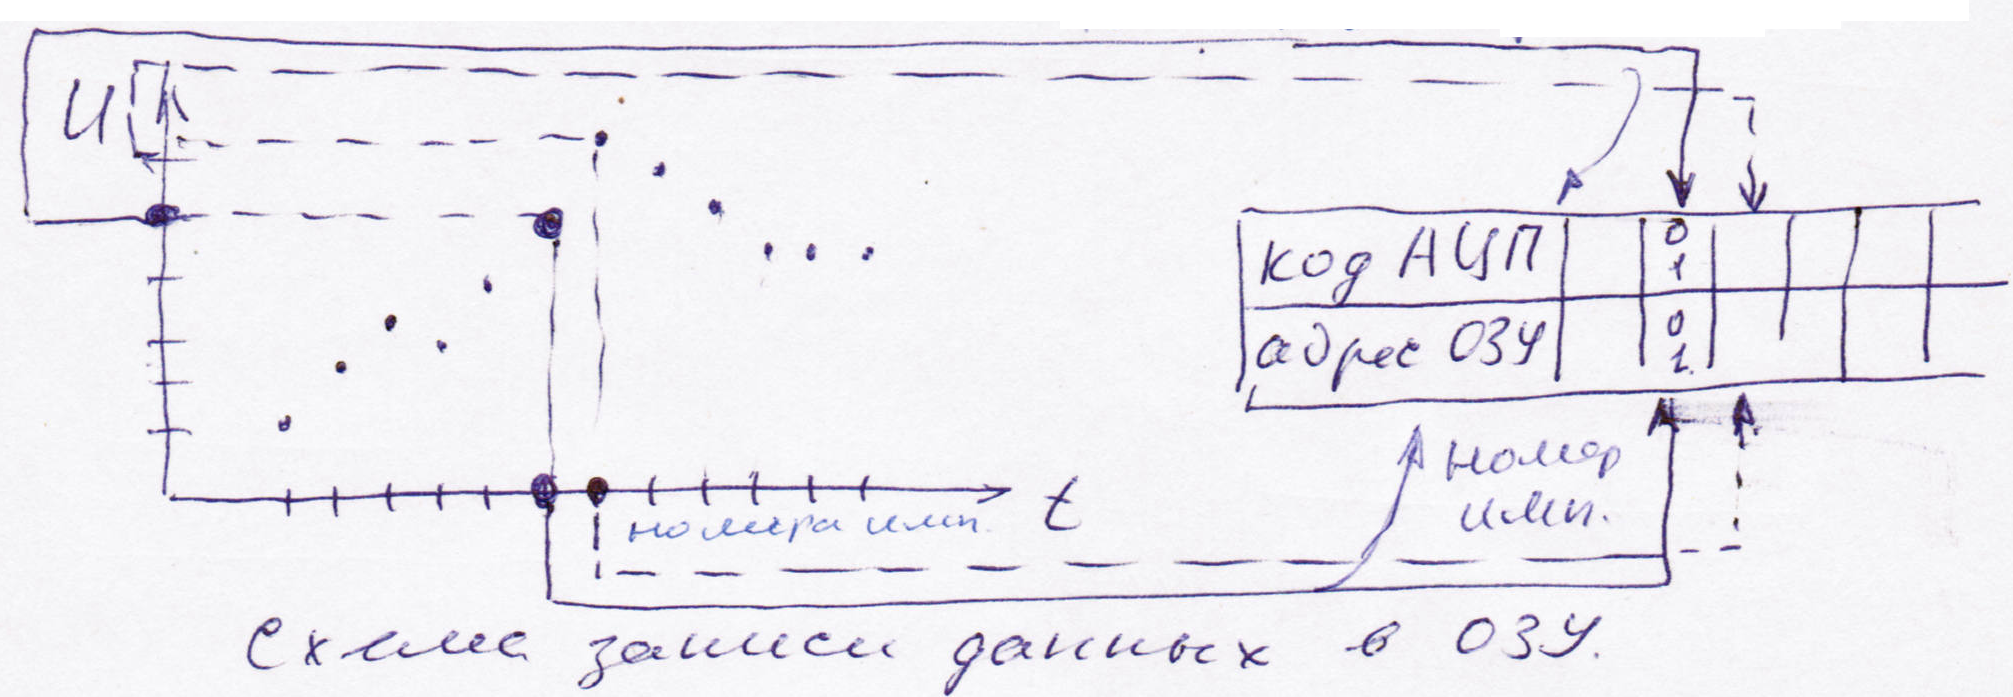 U
код АЦП 0 1
адрес ОЗУ 0 1.
номер
имп.
номера имп.
t
Схема записи данных в ОЗУ.